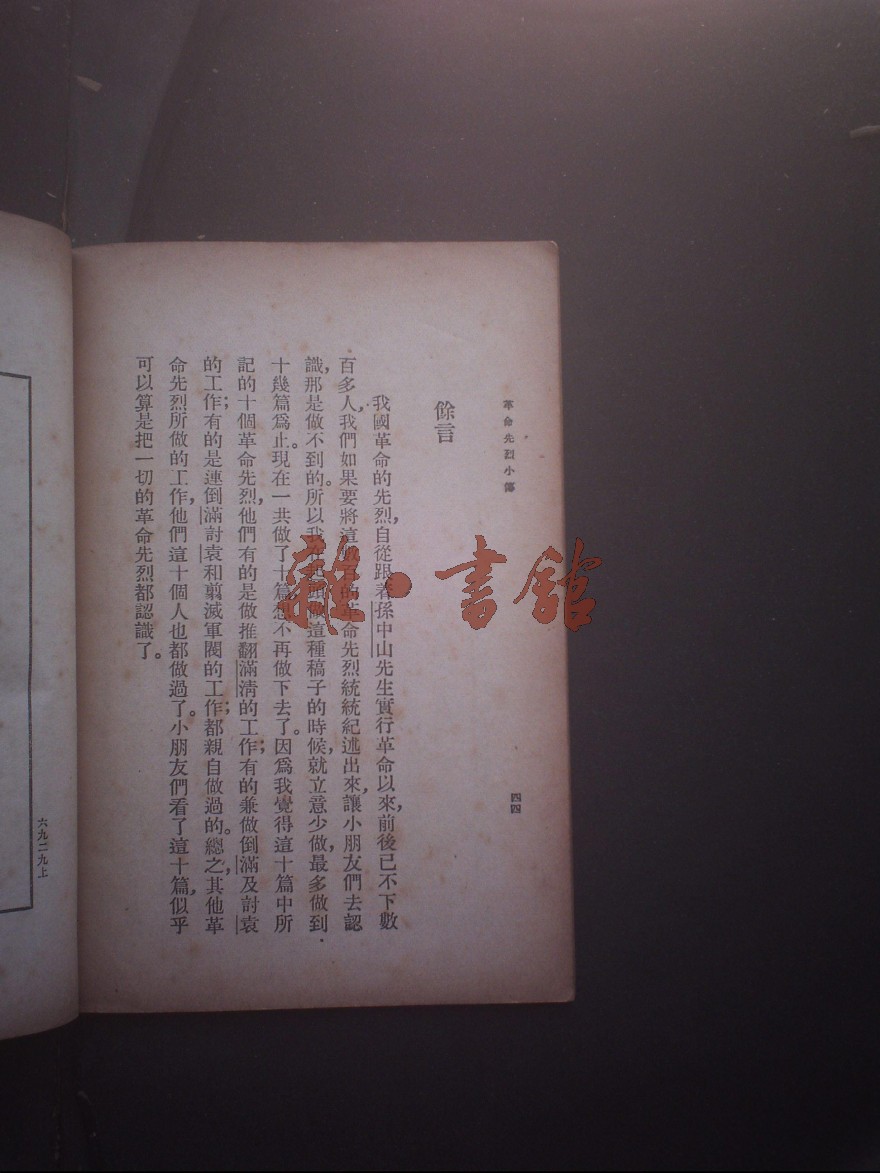 革命先烈小傳
四四
餘言
我國革命的先烈，自從跟着孫中山先生實行革命以來，前後已不下數
百多人，我們如果要將這數百的革命先烈統統紀述出來，讓小朋友們去認
識，那是做不到的。所以我在起頭做這種稿子的時候，就立意少做，最多做到
十幾篇爲止。現在一共做了十篇，想不再做下去了。因爲我覺得這十篇中所
記的十個革命先烈，他們有的是做推翻滿清的工作；有的兼做倒滿及討袁
的工作；有的是連倒滿討袁和翦滅軍閥的工作；都親自做過的。總之，其他革
命先烈所做的工作，他們這十個人也都做過了。小朋友們看了這十篇，似乎
可以算是把一切的革命先烈都認識了。
六九二九上
雜·書館